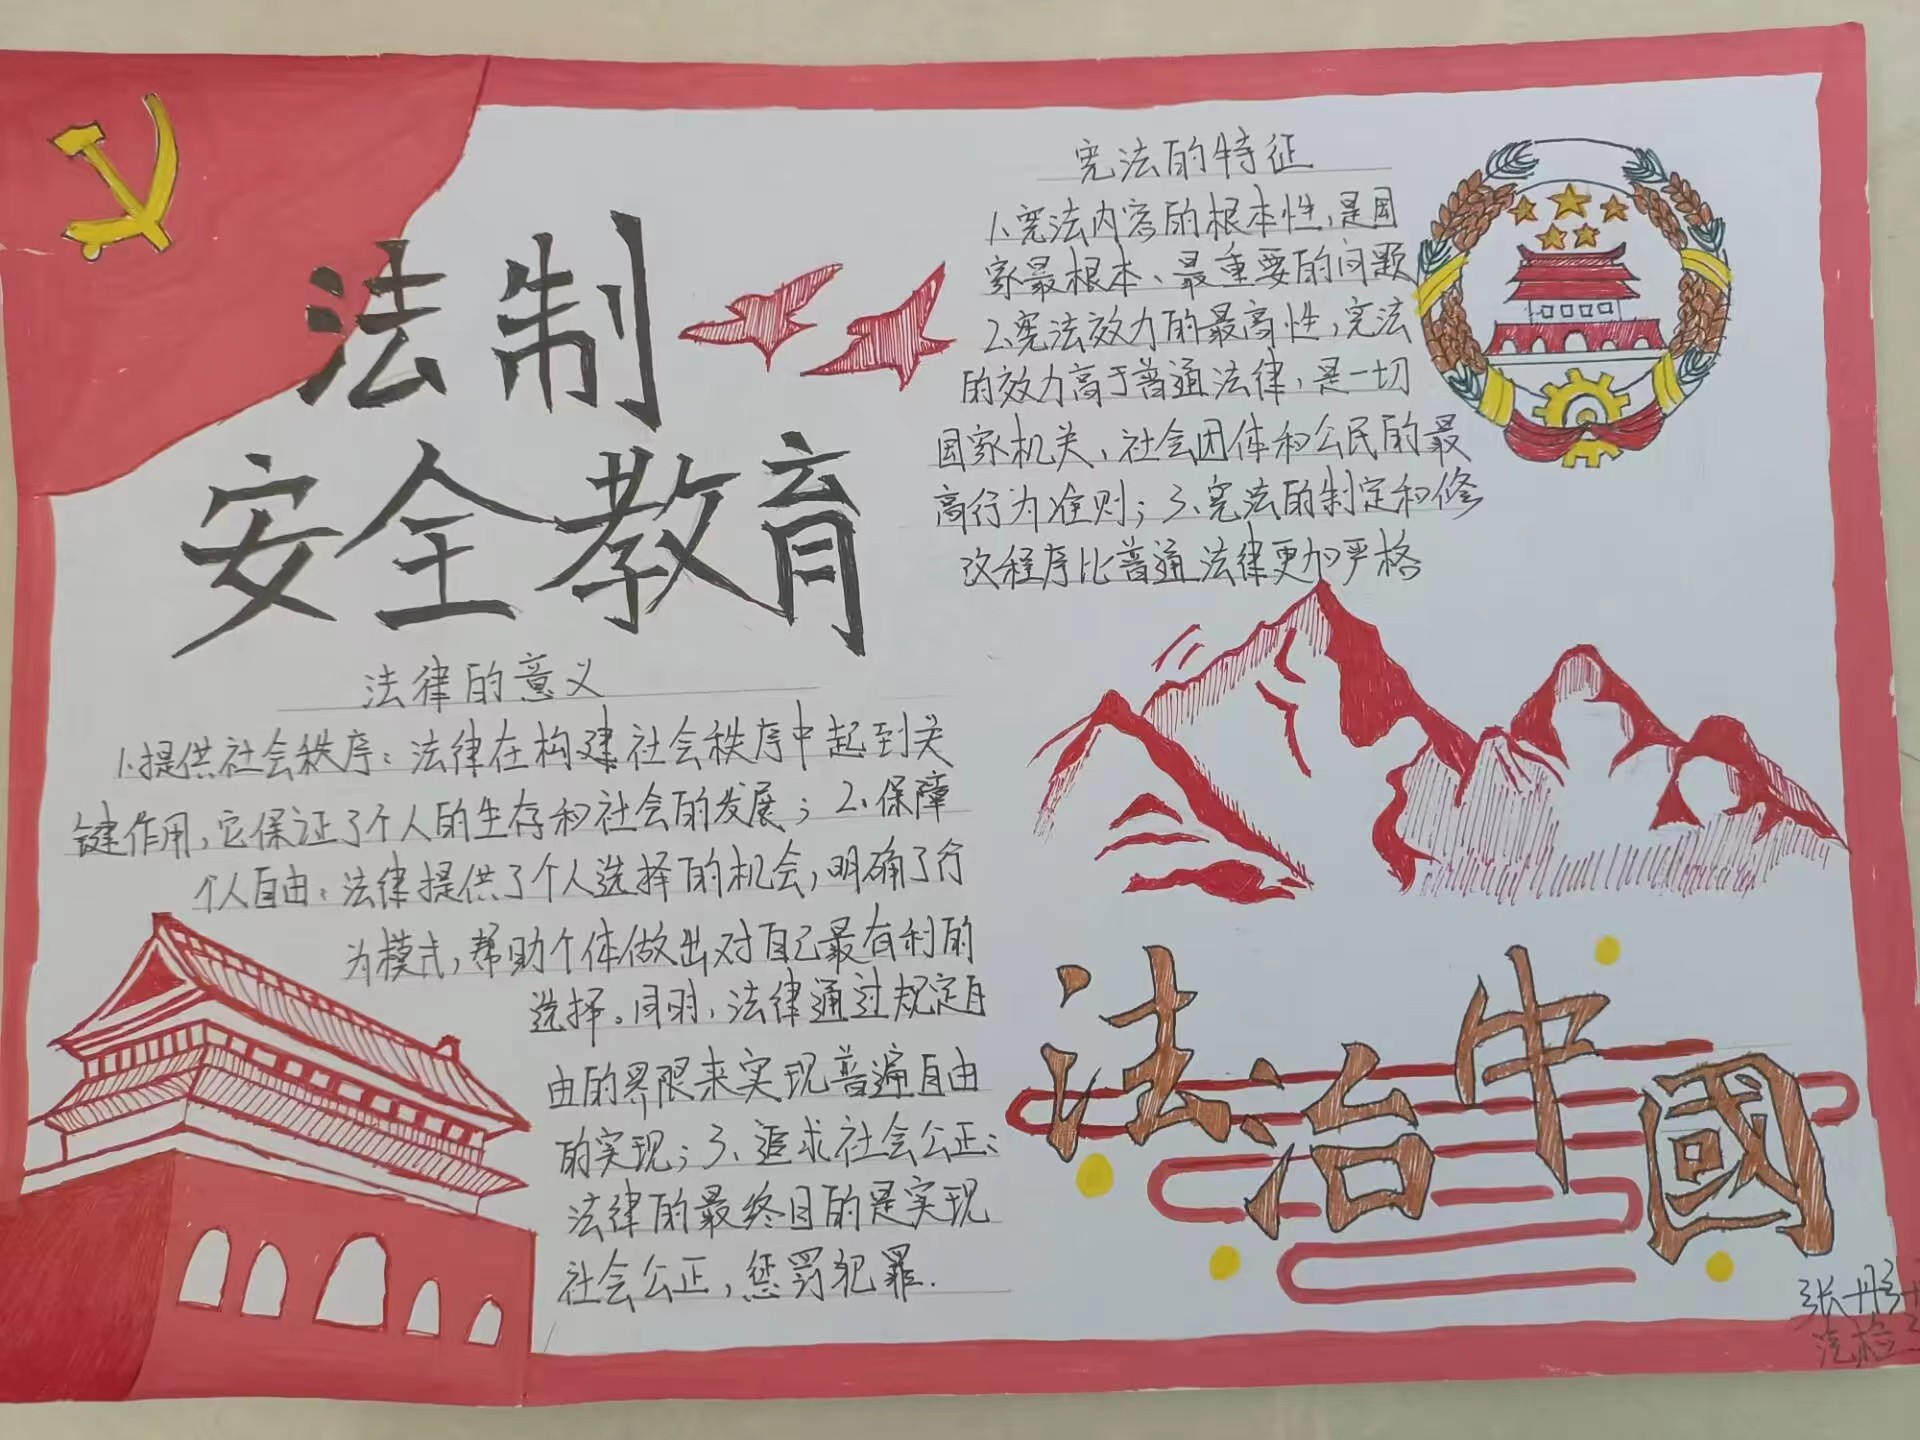 法制
安全教育
法律的意义
1.提供社会秩序：法律在构建社会秩序中起到关
键作用，它保证了个人的生存和社会的发展；2、保障
个人自由：法律提供了个人选择的机会，明确了行
为模式，帮助个体做出对自己最有利的
选择。同时，法律通过规定自
由的界限来实现普遍自由
的实现；3、追求社会公正：
法律的最终目的是实现
社会公正，惩罚犯罪.
宪法的特征
1、宪法内容的根本性，是国
家最根本、最重要的问题
2、宪法效力的最高性，宪法
的效力高于普通法律，是一切
国家机关、社会团体和公民的最
高行为准则；3、宪法的制定和修
改程序比普通法律更加严格
法治中國
张丹
汽检